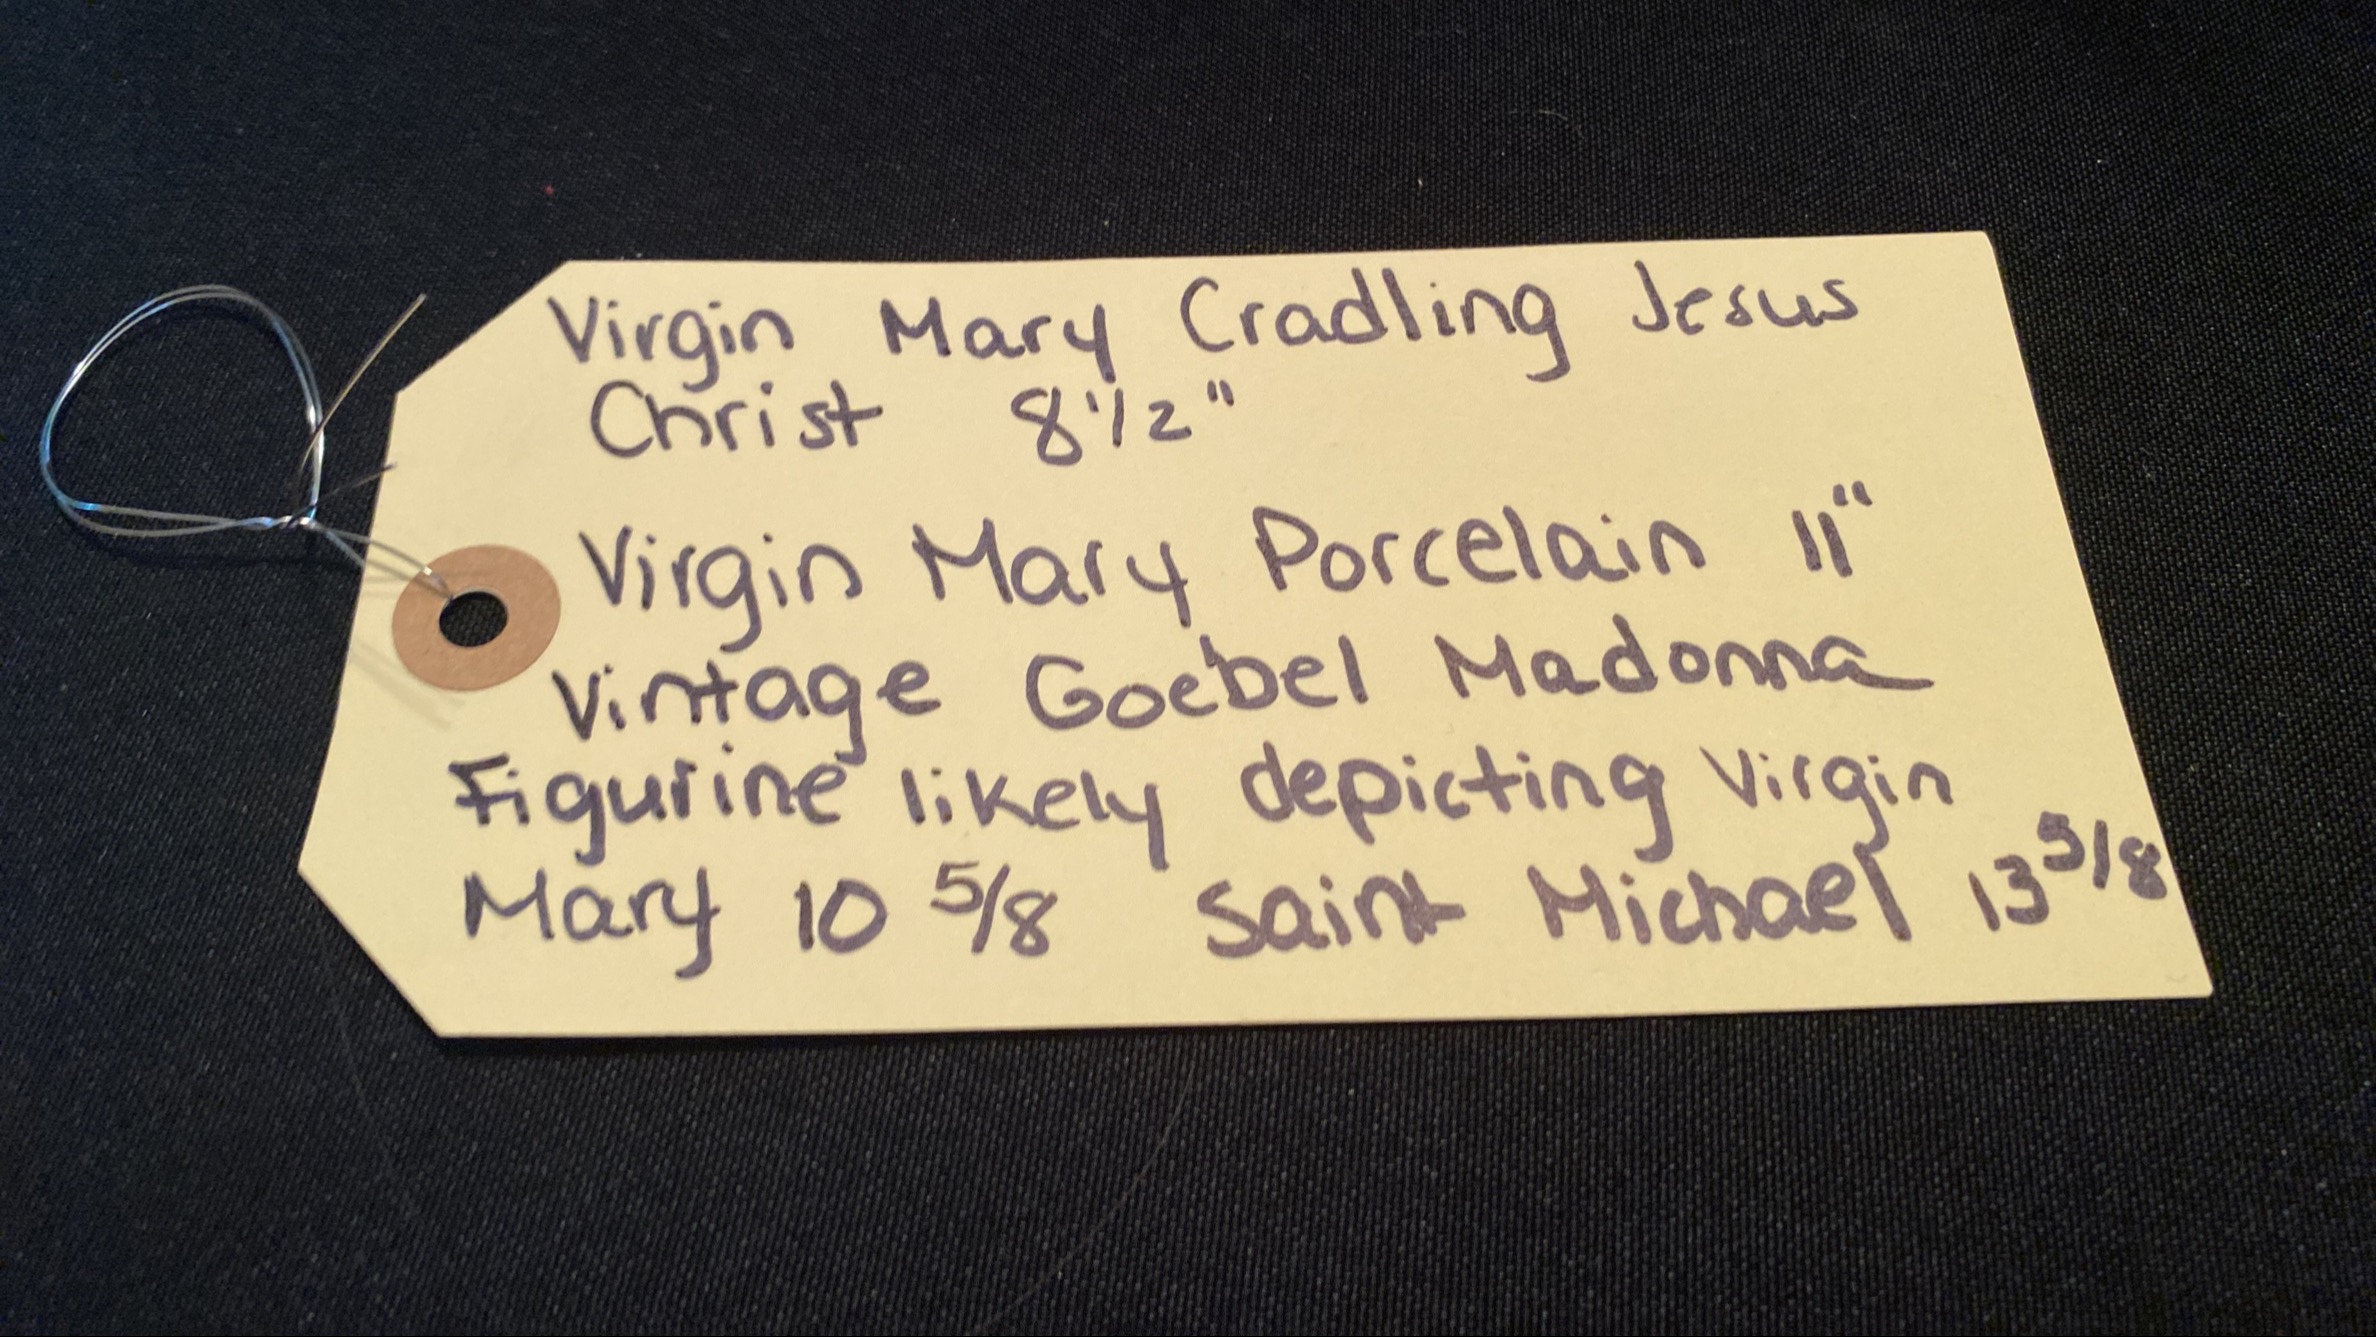 Virgin Mary Cradling Jesus
Christ 8 1/2"
Virgin Mary Porcelain 11"
Vintage Goebel Madonna
Figurine likely depicting Virgin
Mary 10 5/8 Saint Michael 13 5/8